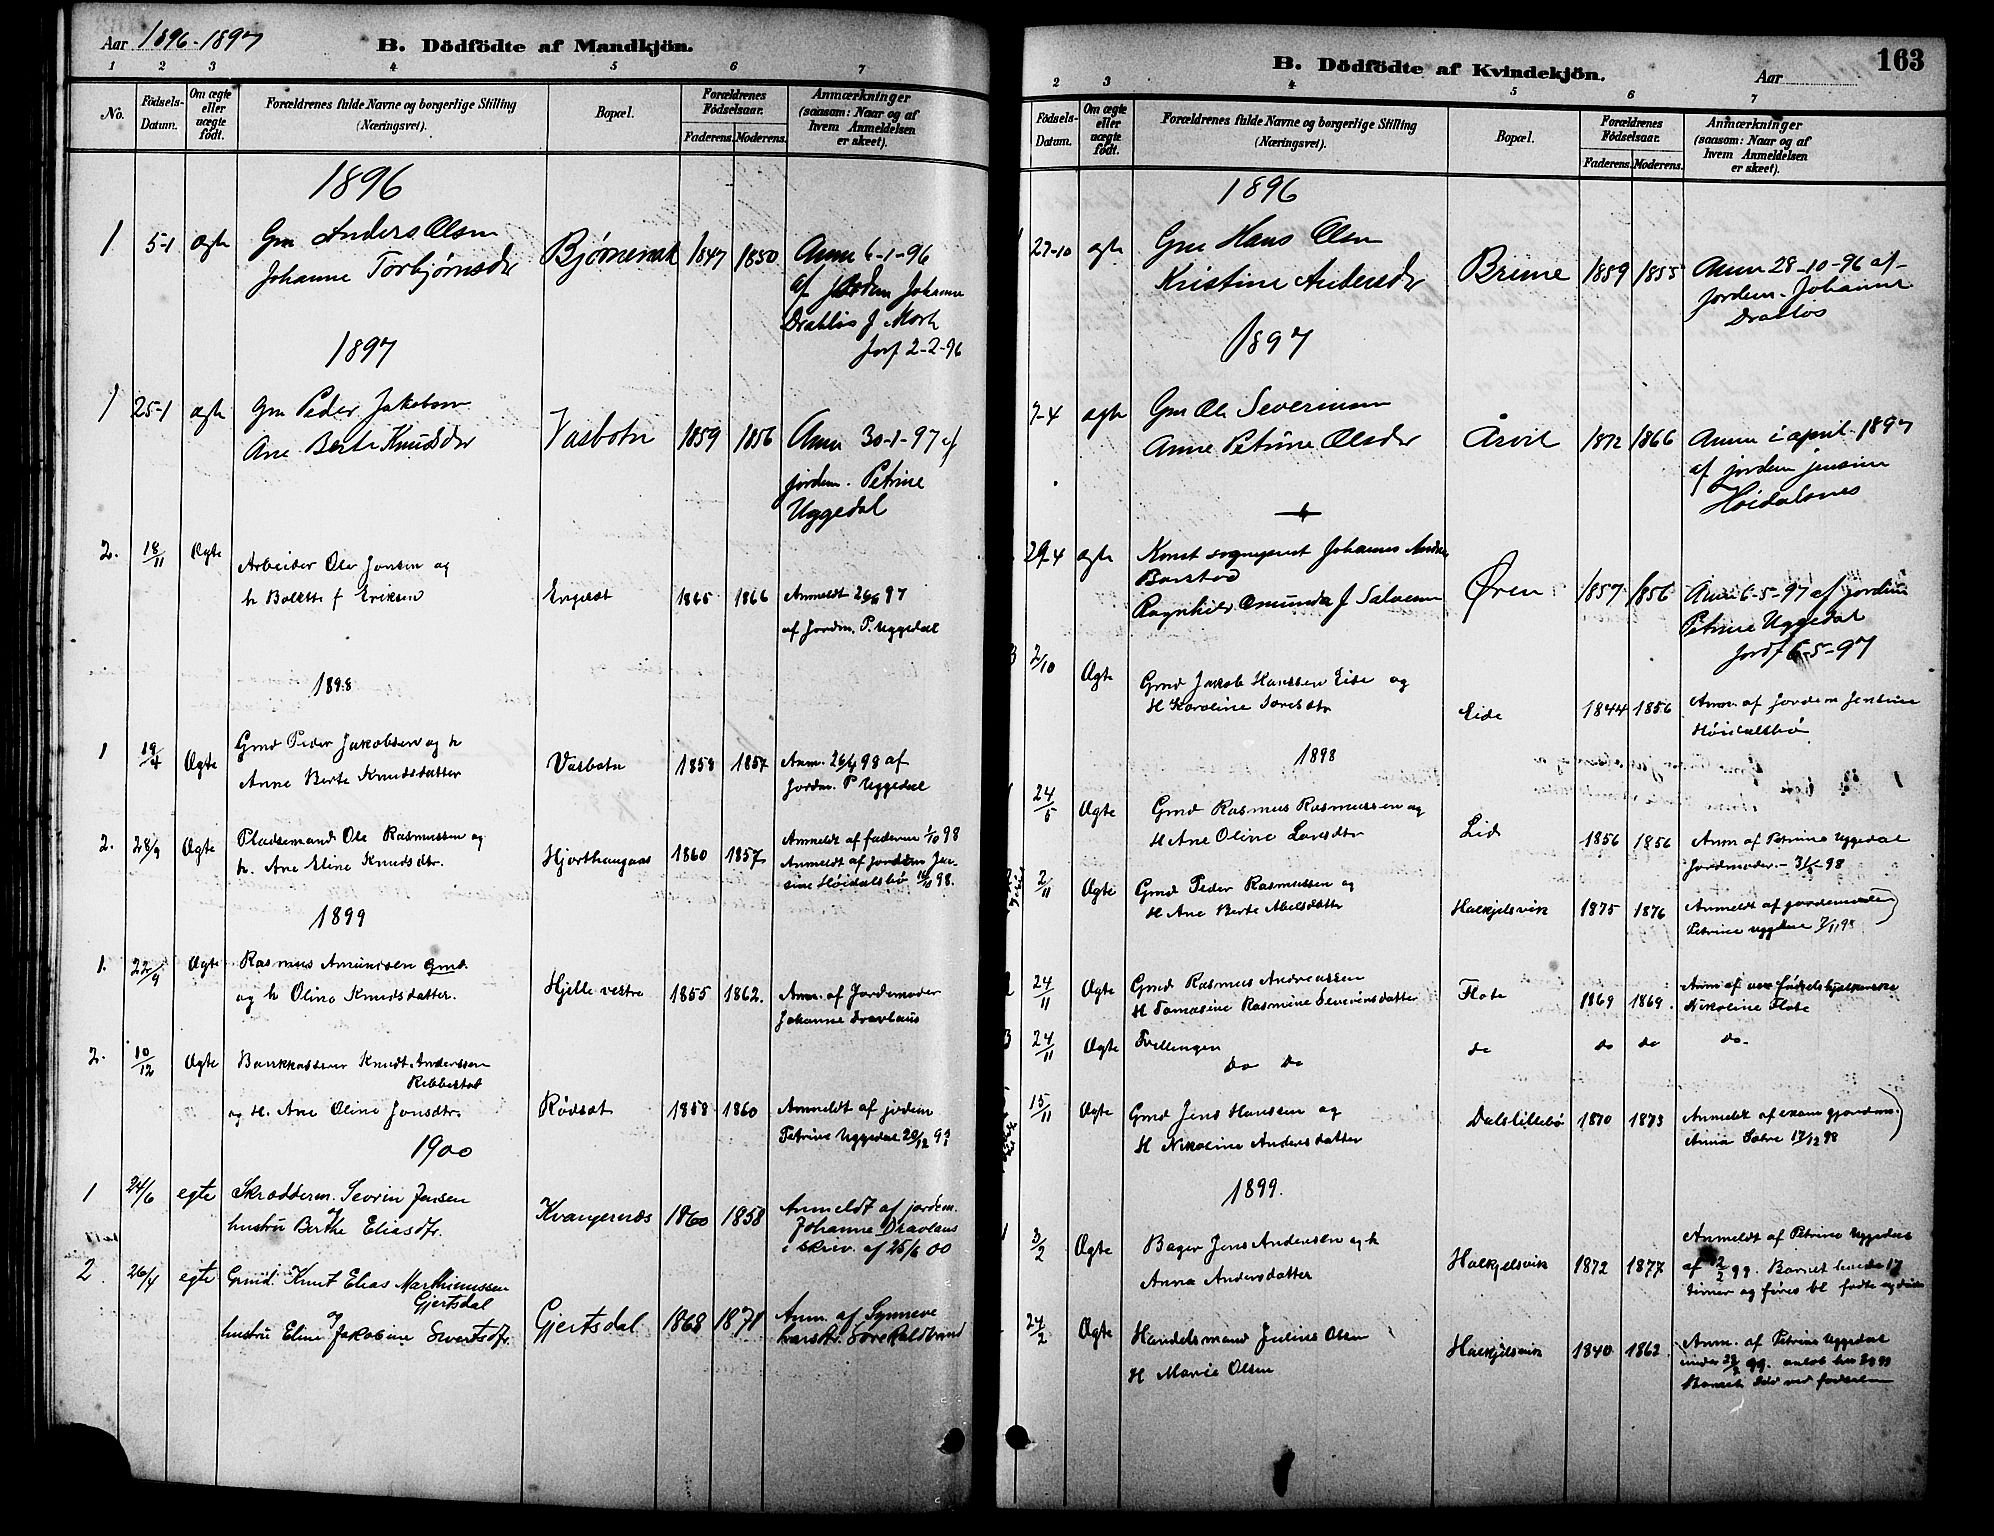 Aar 1896-1897
B. Dödfödte af Mandkjön.
1 2 3 4 5 6 7
No.
Födsels-Datum.
Om ægte eller uægte födt.
Forældrenes fulde Navne og borgerlige Stilling (Næringsvei).
Bopæl.
Forældrenes Födselsaar.
Faderens. Moderens.
Anmærkninger (saasom: Naar og af hvem Anmeldelsen er skeet).
1896
1 5-1 ægte Gm Anders Olsen
Johanne Torbjørnsdr 1847 1850 Anm 6-1-96
af Jordm Johanne
Drabløs f Mork
Jorf 2-2-96
1897
1 25-1 ægte Gm Peder Jakobsen
Ane Berte Knudsdr Vasbotn 1859 1856 Anm 30-1-97 af
jordm. Petrine
Uggedal
2. 18/11 Ægte
Arbeider Ole Jonsen og
h Bolette f Eriksen Engeset 1865 1866 Anmeldt 97
af Jordm. P. Uggedal
1898
1 19/4 Ægte Gmd Peder Jakobsen og h
Anne Berte Knudsdatter Vasbotn 1858 1857 Anm. 98 af
Jordm. P Uggedal
2. 28/9 Ægte Pladsemand Ole Rasmussen og
h. Ane Eline Knudsdtr. Hjorthaugaas 1860 1857 Anmeldt af faderen 1/10 98
Anmeldt af Jordem Jen-
sine Høidalsbø 98.
1899
1. 22/9 Ægte Rasmus Amundsen Gmd.
og h Oline Knudsdatter. Hjelle vestre 1855 1862. Anm. af Jordemoder
Johanne Dravlaus
2. 10/12 Ægte Bankkasserer Knudt Anderssen
Ribbestad
og H. Ane Oline Jonsdtr. Rødset 1858 1860 Anmeldt af jordem
Petrine Uggedal 20/12 99
1900
1 24/6 egte Skrædderm. Sevrin Jensen
og
hustru Berthe Eliasdtr. Kvangernæs 1860 1858 Anmeldt af jordem.
Johanne Dravlaus
i skriv. af 25/6 00
2 egte Grmd. Knut Elias Marthinussen
Gjertsdal
og
hustru Eline Jakobine Sivertsdtr. Gjertsdal 1868 1871 Anm. af Synneve
163
B. Dödfödte af Kvindekjön.
Aar
2 3 4 5 6 7
Födsels-Datum.
Om ægte eller uægte födt.
Forældrenes fulde Navne og borgerlige Stilling (Næringsvei).
Bopæl.
Forældrenes Födselsaar.
Faderens. Moderens.
Anmærkninger (saasom: Naar og af hvem Anmeldelsen er skeet).
1896
27-10 ægte Gm Hans Olsen
Kristine Andersdr Brune 1859 1855 Anm 28-10-96 af
jordem. Johanne
Drabløs
1897
7-4 ægte Gm Ole Severinsen
Anne Petrine Olsdr Aarvik 1872 1866 Anm i april 1897
af jordem Jensine
Høidalsnes
29-4 ægte Konst sogneprest Johannes
Barstad
Ragnhild f Salvesen Øren 1857 1856 Anm 6-5-97 af jordem
Petrine Uggedal
jordf 6-5-97
3 2/10 Ægte Gmd Jakob Hanssen Eide og
H Karoline Eide 1844 1856 Anm. af Jordem Jensine
Høidalsbø
1898
24/5 Ægte Gmd Rasmus Rasmussen og
H Ane Oline Larsdtr Lid 1856 1856 Anm af Petrine Uggedal
Jordmoder. 98
2/11 Ægte Gmd Peder Rasmussen og
H Ane Berte Abelsdatter Halkjelsvik 1875 1876 Anmeldt af jordemoder
Petrine Uggedal 7/11 98
24/11 Ægte Gmd Rasmus Andreassen
H Tomasine Rasmine Severinsdatter Flote 1869 1869. Anm af
Nikoline Flote
3 24/11 Ægte Tvillingen
do do do do do do.
15/11 Ægte Gmd Jens Hanssen og
H Nikoline Andersdatter Dalslillebø 1870 1873 Anmeldt af exam gjordem.
Anna Solve 17/12 98
1899.
3/2 Ægte Bager Jens Andersen og h
Anna Andersdatter Halkjelsvik 1872 1877 Anmeldt af Petrine Uggedal
af 12/2 99. Barnet levede 17
timer og føres bl fødte og døde
24/2 Ægte Handelsmand Julius Olsen
H Marie Olsen Halkjelsvik 1840 1862. Anm. af Petrine Uggedal
under 99.
Barnet død ved fødselen